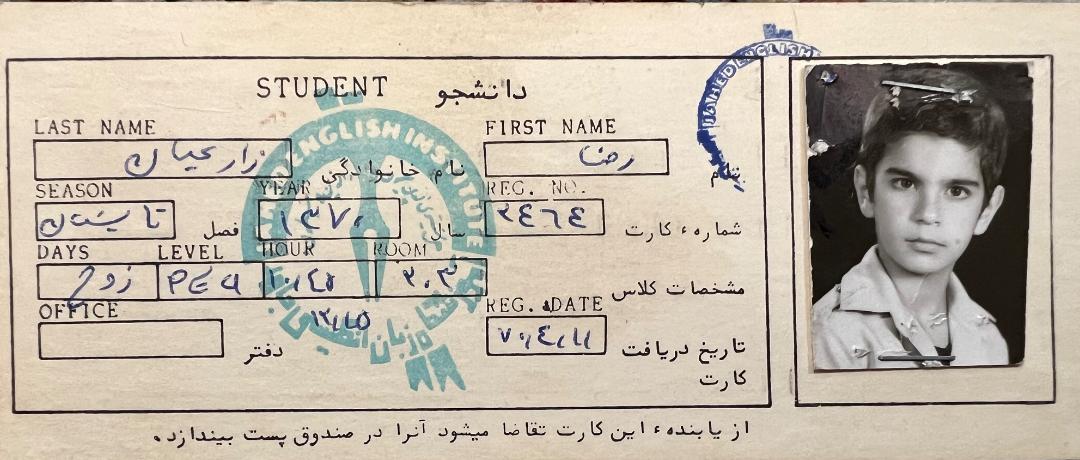 STUDENT دانشجو
LAST NAME FIRST NAME
زارعیان نام خانوادگی رضا نام
SEASON YEAR REG. NO.
تابستان فصل ۱۳۷۰ سال ۲٤٦٤ شماره ء کارت
DAYS LEVEL HOUR ROOM
زوج ۲۰۳ مشخصات کلاس
OFFICE REG. DATE
دفتر ۷۰,٤,۱۱ تاریخ دریافت
کارت
از یابنده ء این کارت تقاضا میشود آنرا در صندوق پست بیندازد.
ENGLISH INSTITUTE
JAHED ENGLISH